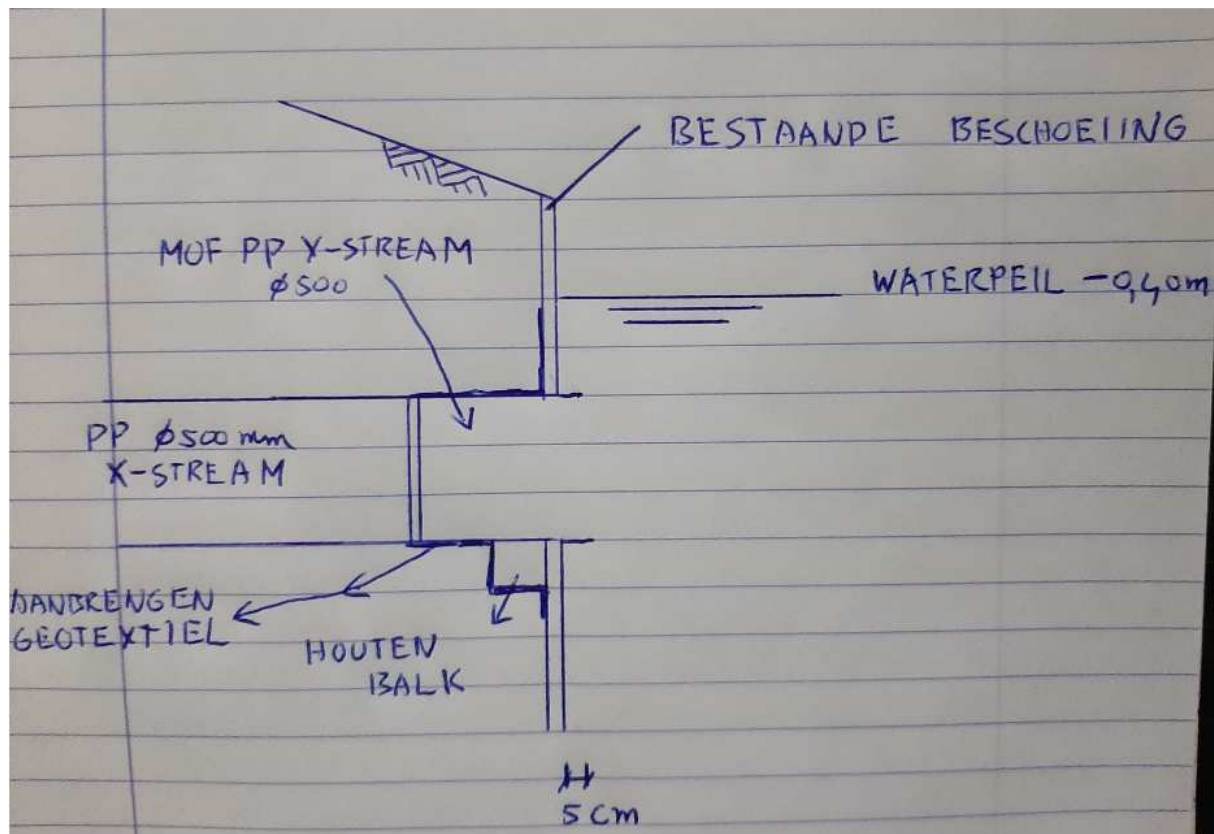 BESTAANDE BESCHOEIING
MOF PP X-STREAM
ø500
WATERPEIL -0,40m
PP ø500 mm
X-STREAM
AANBRENGEN
GEOTEXTIEL
HOUTEN
BALK
5 cm